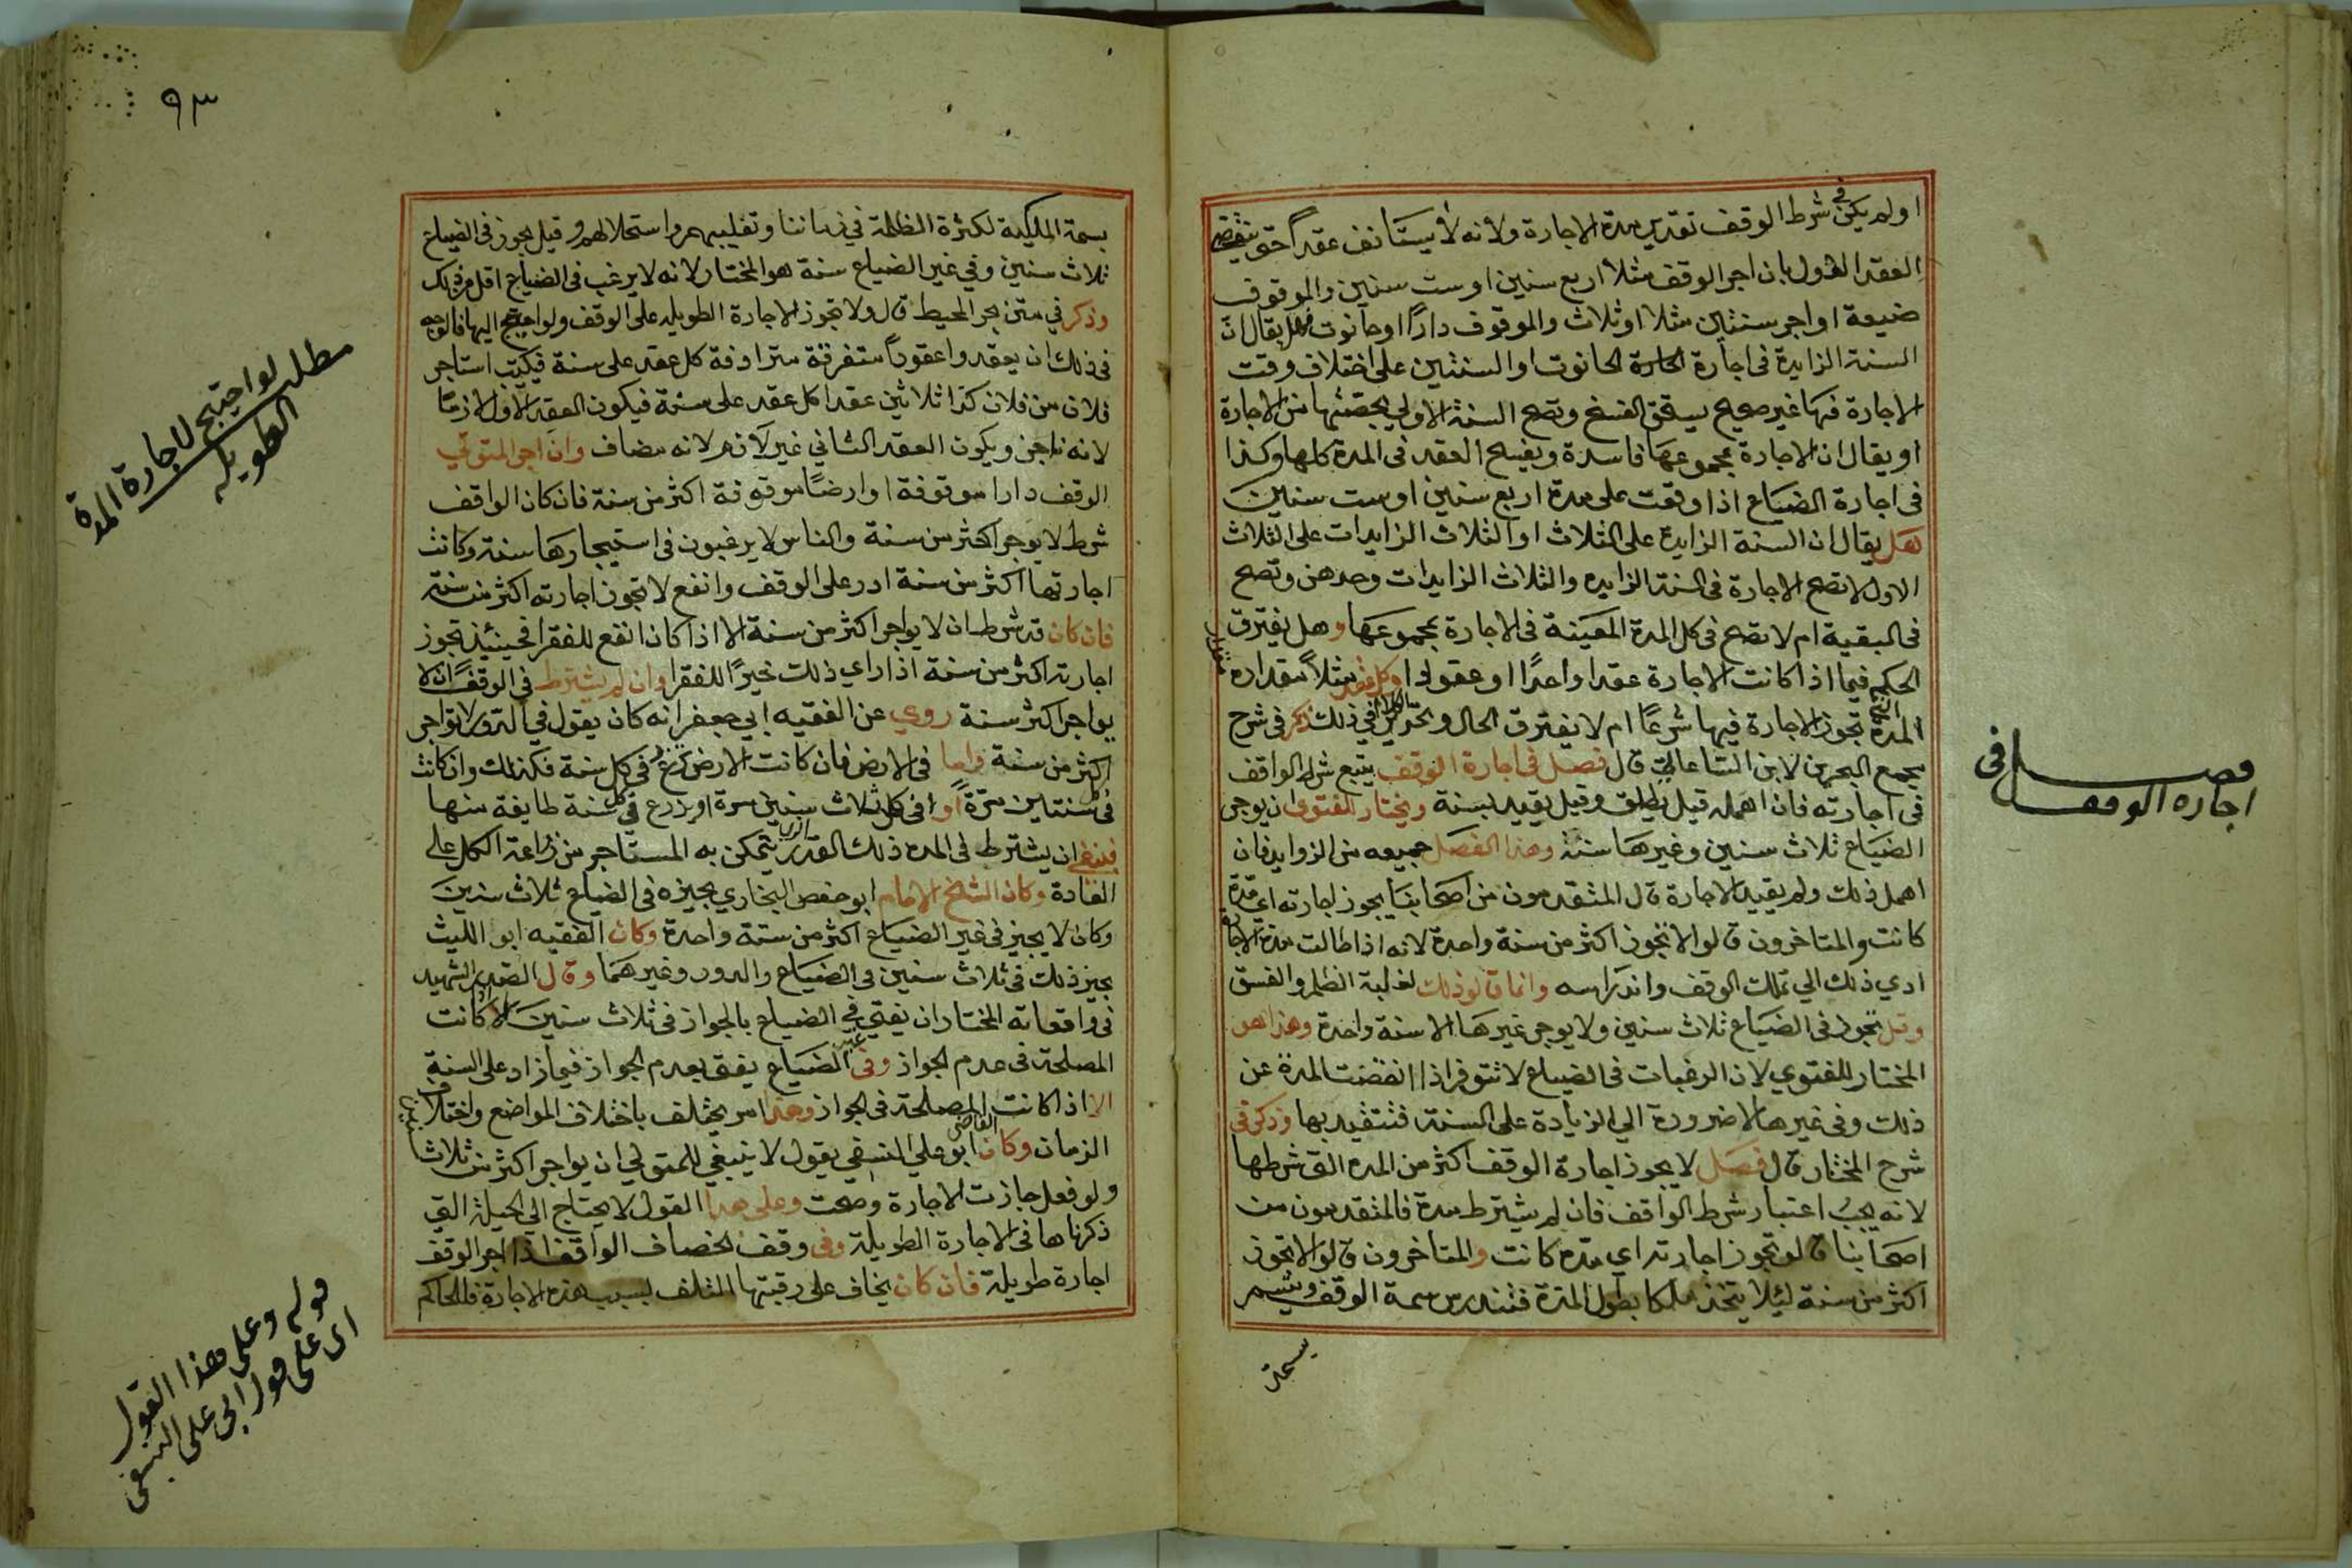 او لم يكن في شرط الوقف تقدير مدة الاجارة ولانه لا يستانف عقدا حتى ينقضي
العقد الاول بان اجر الوقف مثلا اربع سنين او ست سنين والموقوف
ضيعة او اجر سنتين مثلا او ثلاث والموقوف دارًا او حانوت فهل يقال ان
السنة الزايدة في اجارة الحانوت او السنتين على اختلاف وقت
الاجارة فيها غير صحيح يستحق الفسخ وتصح السنة الاولي بحصتها من الاجارة
او يقال ان الاجارة بمجموعها فاسدة ويفسخ العقد في المدة كلها وكذا
في اجارة الضياع اذا وقعت على مدة اربع سنين او ست سنين
هل يقال ان السنة الزايدة على الثلاث او الثلاث الزايدات على الثلاث
الاول لا تصح الاجارة في السنة الزايده والثلاث الزايدات وحدهن وتصح
في البقية ام لا تصح في كل المدة المعينة في الاجارة بمجموعها وهل يفترق
الحكم فيما اذا كانت الاجارة عقدا واحدًا او عقودا وكل عقد مثلا مقداره
المدة التي تجوز الاجارة فيها شرعًا ام لا يفترق الحال وتحرير الكلام في ذلك ذكر في شرح
مجمع البحرين لابن الساعاتي قال فصل في اجارة الوقف يتبع شرط الواقف
في اجارته فان اهمله قيل يطلق وقيل يقيد بسنة ويختار للفتوى ان يوجر
الضياع ثلاث سنين وغيرها سنة وهذا الفصل جميعه من الزوايد فان
اهمل ذلك ولم يقيد الاجارة قال المتقدمون من اصحابنا يجوز اجارته اي مدة
كانت والمتاخرون قالوا لا تجوز اكثر من سنة واحدة لانه اذا طالت مدة الاجارة
ادي ذلك الي تملك الوقف واندراسه وانما قالو ذلك لغلبة الظلم والفسق
وقيل تجوز في الضياع ثلاث سنين ولا يوجر غيرها الا سنة واحدة وهذا هو
المختار للفتوي لان الرغبات في الضياع لا تتوفر اذا انقضت المدة عن
ذلك وفي غيرها لا ضرورة الي الزيادة على السنة فتتقيد بها وذكر في
شرح المختار قال فصل لا يجوز اجارة الوقف اكثر من المده التي شرطها
لانه يجب اعتبار شرط الواقف فان لم يشترط مدة فالمتقدمون من
اصحابنا قالو تجوز اجارته اي مدة كانت والمتاخرون قالوا لا تجوز
اكثر من سنة ليلا يتخذ ملكا بطول المدة فتندرس سمة الوقف ويتسم
بسمة
فصل في
اجارة الوقف
٩٣
بسمة الملكية لكثرة الظلمة في زماننا وتغلبهم واستحلالهم وقيل يجوز في الضياع
ثلاث سنين وفي غير الضياع سنة هو المختار لانه لا يرغب في الضياع اقل من ذلك
وذكر في متن بحر المحيط قال ولا تجوز الاجارة الطويله على الوقف ولو احتيج اليها فالوجه
في ذلك ان يعقدوا عقودا متفرقة مترادفة كل عقد على سنة فيكتب استاجر
فلان من فلان كذا ثلاثين عقدا كل عقد على سنة فيكون العقد الاول لازمًا
لانه ناجز ويكون العقد الثاني غير لازم لانه مضاف وان اجر المتولي
الوقف دارا موقوفة او ارضًا موقوفة اكثر من سنة فان كان الواقف
شرط لا يوجر اكثر من سنة والناس لا يرغبون في استيجارها سنة وكانت
اجارتها اكثر من سنة ادر على الوقف وانفع لا تجوز اجارته اكثر من سنة
فان كان قد شرط ان لا يواجر اكثر من سنة الا اذا كان انفع للفقرا فحينئذ تجوز
اجارته اكثر من سنة اذا راي ذلك خيرًا للفقرا وان لم يشترط في الوقف ان لا
يواجر اكثر سنة روي عن الفقيه ابي جعفر انه كان يقول في الدور لا تواجر
اكثر من سنة واما في الارض فان كانت الارض تزرع في كل سنة فكذلك وان كانت
في كل سنتين مرة او في كل ثلاث سنين مرة او يزرع في كل سنة طايفة منها
فينبغي ان يشترط في المده ذلك القدر الذي يتمكن به المستاجر من زراعة الكل على
العادة وكان الشيخ الامام ابو حفص البخاري يجيزه في الضياع ثلاث سنين
وكان لا يجيز في غير الضياع اكثر من سنة واحدة وكان الفقيه ابو الليث
يجيز ذلك في ثلاث سنين في الضياع والدور وغيرهما وقال الصدر الشهيد
في واقعاته المختار ان يفتي في الضياع بالجواز في ثلاث سنين الا اذا كانت
المصلحة في عدم الجواز وفي غير الضياع يفتى بعدم الجواز فيما زاد على السنة
الا اذا كانت المصلحة في الجواز وهذا امر يختلف باختلاف المواضع واختلاف
الزمان وكان القاضي ابو علي النسفي يقول لا ينبغي للمتولي ان يواجر اكثر من ثلاث سنين
ولو فعل جازت الاجارة وصحت وعلى هذا القول لا يحتاج الي الحيلة التي
ذكرناها في الاجارة الطويلة وفي وقف الخصاف الواقف اذا اجر الوقف
اجارة طويلة فان كان يخاف على رقبتها التلف بسبب هذه الاجارة فللحاكم
مطلب لو احتيج لاجارة المدة
الطويله
قوله وعلى هذا القول
اى على قول ابى على النسفى